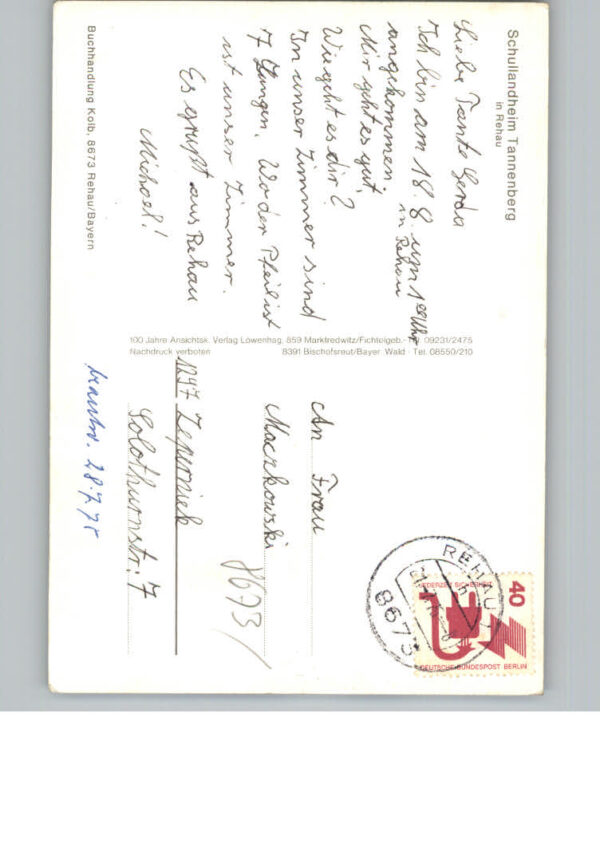 Schullandheim Tannenberg
in Rehau
Liebe Tante Gerda
Ich bin am 18. 8. um 1⁰⁰ Uhr
in Rehau
angekommen
Mir geht es gut,
Wie geht es dir?
In unser Zimmer sind
7 Jungen. Wo der Pfeil ist
ist unser Zimmer.
Es grüßt aus Rehau
Michael!
Buchhandlung Kolb, 8673 Rehau/Bayern
100 Jahre Ansichtsk. Verlag Löwenhag, 859 Marktredwitz/Fichtelgeb.-Tel. 09231/2475
Nachdruck verboten 8391 Bischofsreut/Bayer. Wald - Tel. 08550/210
An Frau
Maczkowski
8673/
Zepernick
Solothurnstr. 7
28.7.75
REHAU 1
8673
40
JEDERZEIT SICHERHEIT
DEUTSCHE BUNDESPOST BERLIN